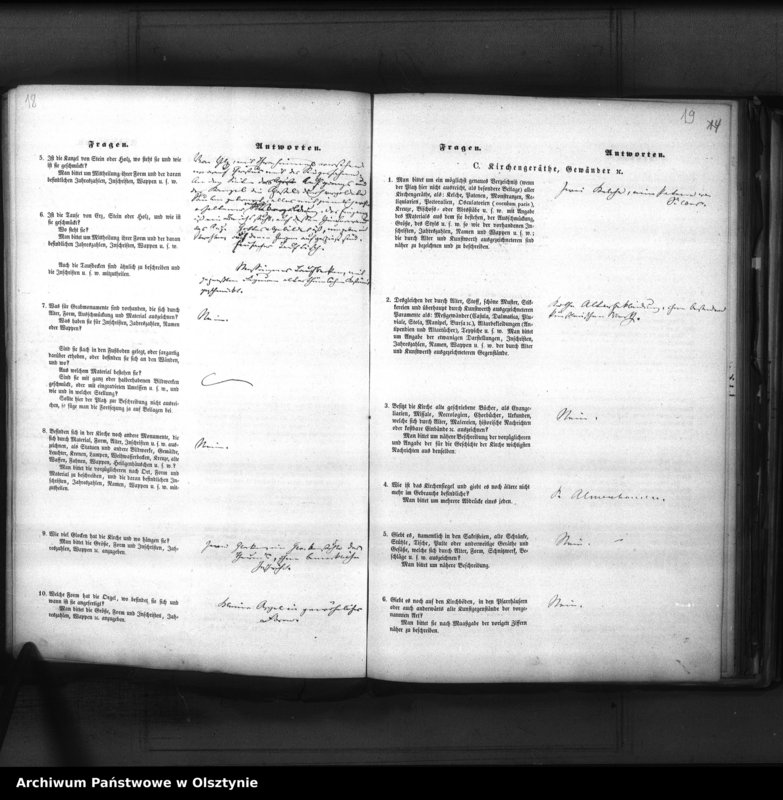 18
Fragen.
Antworten.
5. Ist die Kanzel von Stein oder Holz, wo steht sie und wie
ist sie geschmückt?
Man bittet um Mittheilung ihrer Form und der daran
befindlichen Jahreszahlen, Inschriften, Wappen u. s. w.
6. Ist die Taufe von Erz, Stein oder Holz, und wie ist
sie geschmückt?
Wo steht sie?
Man bittet um Mittheilung ihrer Form und der daran
befindlichen Jahreszahlen, Inschriften, Wappen u. s. w.
Auch die Taufbecken sind ähnlich zu beschreiben und
die Inschriften u. s. w. mitzutheilen.
7. Was für Grabmonumente sind vorhanden, die sich durch
Alter, Form, Ausschmückung und Material auszeichnen?
Was haben sie für Inschriften, Jahreszahlen, Namen
oder Wappen?
Nein.
Sind sie flach in den Fußboden gelegt, oder sargartig
darüber erhoben, oder befinden sie sich an den Wänden,
und wo?
Aus welchem Material bestehen sie?
Sind sie mit ganz oder halberhabenen Bildwerken
geschmückt, oder mit eingravirten Umrissen u. s. w., und
wie und in welcher Stellung?
Sollte hier der Platz zur Beschreibung nicht ausrei-
chen, so füge man die Fortsetzung ja auf Beilagen bei
8. Befinden sich in der Kirche noch andere Monumente, die
sich durch Material, Form, Alter, Inschriften u. s. w. aus-
zeichnen, als Statuen und andere Bildwerke, Gemälde,
Leuchter, Kronen, Lampen, Weihwasserbecken, Kreuze, alte
Waffen, Fahnen, Wappen, Heiligenhäuschen u. s. w.?
Man bittet die vorzüglicheren nach Ort, Form und
Material zu beschreiben, und die daran befindlichen In-
schriften, Jahreszahlen, Namen, Wappen u. s. w. mit-
zutheilen.
Nein.
9. Wie viel Glocken hat die Kirche und wo hängen sie?
Man bittet die Größe, Form und Inschriften, Jah-
reszahlen, Wappen ꝛc. anzugeben.
10. Welche Form hat die Orgel, wo befindet sie sich und
wann ist sie angefertigt?
Man bittet die Größe, Form und Inschriften, Jah-
reszahlen, Wappen ꝛc. anzugeben.
Kleine Orgel in gewöhnlicher
Form
19
14
Fragen.
Antworten.
C. Kirchengeräthe, Gewänder ꝛc.
1. Man bittet um ein möglichst genaues Verzeichniß (wenn
der Platz hier nicht ausreicht, als besondere Beilage) aller
Kirchengeräthe, als: Kelche, Patenen, Monstranzen, Re-
liquiarien, Pectoralien, Osculatorien (osculum pacis),
Kreuze, Bischofs- oder Abtsstäbe u. s. w. mit Angabe
des Materials aus dem sie bestehen, der Ausschmückung,
Größe, des Styls u. s. w. so wie der vorhandenen In-
schriften, Jahreszahlen, Namen und Wappen u. s. w.;
die durch Alter und Kunstwerth ausgezeichneteren sind
näher zu bezeichnen und zu beschreiben.
Zwei Kelche, eine Patene von
Silber.
2. Desgleichen der durch Alter, Stoff, schöne Muster, Stik-
kereien und überhaupt durch Kunstwerth ausgezeichneteren
Paramente als: Meßgewänder (Casula, Dalmatica, Plu-
viale, Stola, Manipel, Bursa ꝛc.), Altarbekleidungen (An-
tipendien und Altartücher), Teppiche u. s. w. Man bittet
um Angabe der etwanigen Darstellungen, Inschriften,
Jahreszahlen, Namen, Wappen u. s. w. der durch Alter
und Kunstwerth ausgezeichneteren Gegenstände.
Rothe Altarbekleidung, ohne besonderen
künstlerischen Werth.
3. Besitzt die Kirche alte geschriebene Bücher, als Evange-
liarien, Missale, Necrologien, Chorbücher, Urkunden,
welche sich durch Alter, Malereien, historische Nachrichten
oder kostbare Einbände ꝛc. auszeichnen?
Man bittet um nähere Beschreibung der vorzüglicheren
und Angabe der für die Geschichte der Kirche wichtigsten
Nachrichten aus denselben.
Nein.
4. Wie ist das Kirchensiegel und giebt es noch ältere nicht
mehr im Gebrauch befindliche?
Man bittet um mehrere Abdrücke eines jeden.
5. Giebt es, namentlich in den Sakristeien, alte Schränke,
Stühle, Tische, Pulte oder anderweitige Geräthe und
Gefäße, welche sich durch Alter, Form, Schnitzwerk, Be-
schläge u. s. w. auszeichnen?
Man bittet um nähere Beschreibung.
Nein.
6. Giebt es noch auf den Kirchböden, in den Pfarrhäusern
oder auch anderwärts alte Kunstgegenstände der vorge-
nannten Art?
Man bittet sie nach Maaßgabe der vorigen Ziffern
näher zu beschreiben.
Nein.
Archiwum Państwowe w Olsztynie